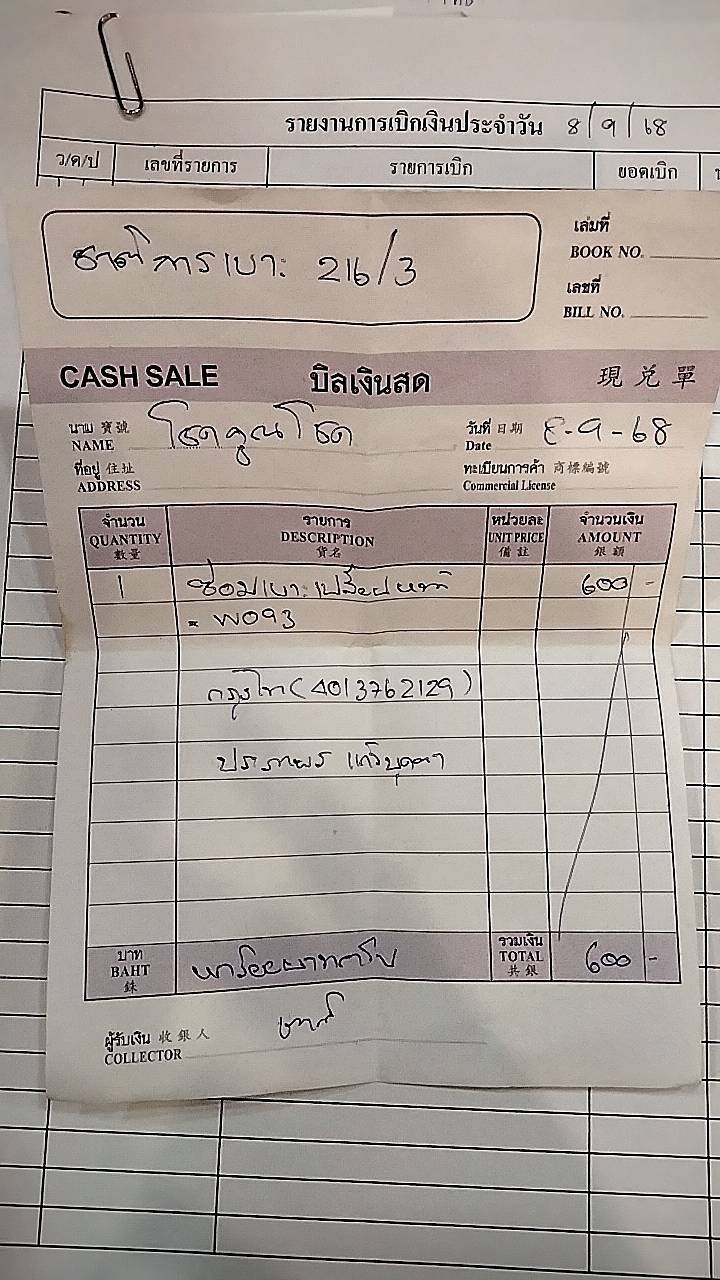 รายงานการเบิกเงินประจำวัน 8/9/68
ว/ด/ป เลขที่รายการ รายการเบิก ยอดเบิก
ชาติการเบาะ 216/3
เล่มที่
BOOK NO.
เลขที่
BILL NO.
CASH SALE บิลเงินสด 現兌單
นาม 寶號 โชคคูณโชค วันที่ 日期 8-9-68
NAME Date
ที่อยู่ 住址 ทะเบียนการค้า 商標編號
ADDRESS Commercial License
จำนวน รายการ หน่วยละ จำนวนเงิน
QUANTITY DESCRIPTION UNIT PRICE AMOUNT
數量 貨名 備註 銀額
1 ซ่อมเบาะเปลี่ยนหนัง 600 -
* W093
กรุงไทย (4013762129)
บาท หกร้อยบาทถ้วน รวมเงิน 600 -
BAHT TOTAL
銖 共銀
ผู้รับเงิน 收銀人
COLLECTOR